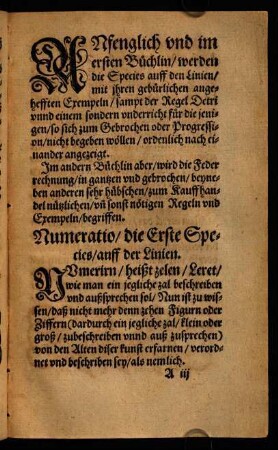 ANfenglich vnd im
ersten Büchlin/ werden
die Species auff den Linien/
mit jhren gebürlichen ange-
hefften Exempeln/ sampt der Regel Detri
vnnd einem sondern vnderricht für die jeni-
gen/ so sich zum Gebrochen oder Progressi-
on/ nicht begeben wöllen/ ordenlich nach ei-
nander angezeigt.
Im andern Büchlin aber/ wird die Feder
rechnung/ in gantzen vnd gebrochen/ beyne-
ben anderen sehr hübschen/ zum Kauffhan-
del nützlichen/ vñ sonst nötigen Regeln vnd
Exempeln/ begriffen.
Numeratio/ die Erste Spe-
cies/ auff der Linien.
NVmerirn/ heißt zelen/ Leret/
wie man ein jegliche zal beschreiben
vnd außsprechen sol/ Nun ist zu wis-
sen/ daß nicht mehr denn zehen Figurn oder
Ziffern (dardurch ein jegliche zal/ klein oder
groß/ zubeschreiben vnnd auß zusprechen)
von den Alten diser kunst erfarnen/ verord-
net vnd beschriben sey/ als nemlich.
A iij